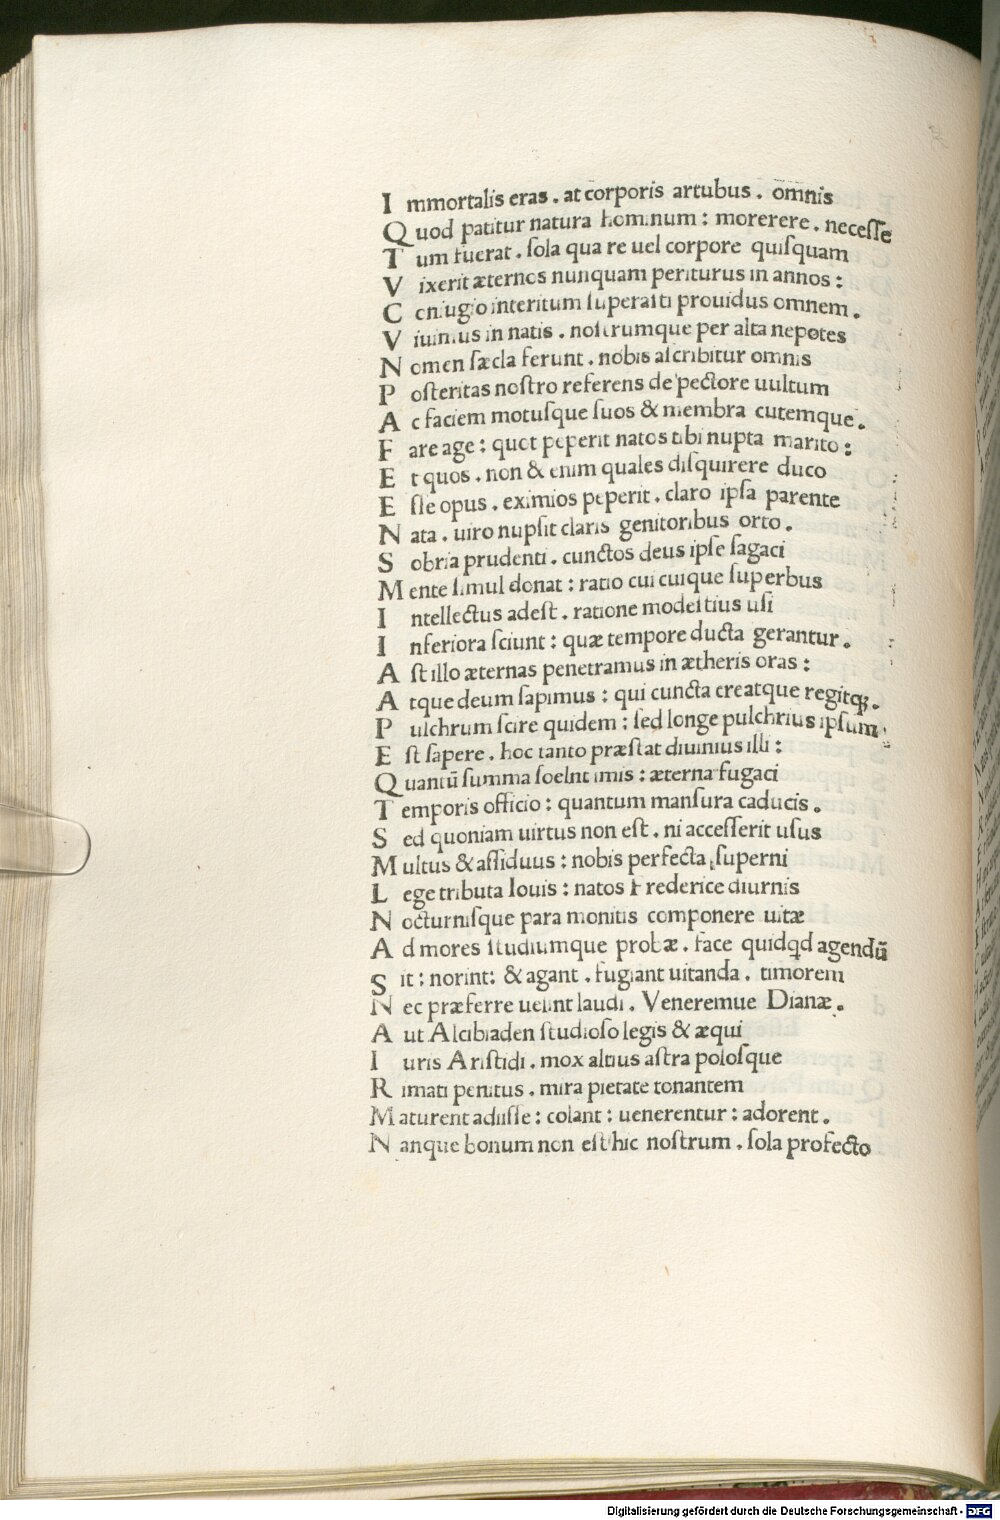 I mmortalis eras . at corporis artubus . omnis
Q uod patitur natura hominum : morerere . necesſe
T um fuerat . ſola qua re uel corpore quiſquam
V ixerit æternos nunquam periturus in annos :
C oniugio interitum ſuperaſti prouidus omnem .
V iuimus in natis . noſtrumque per alta nepotes
N omen ſæcla ferunt . nobis aſcribitur omnis
P oſteritas noſtro referens de pectore uultum
A c faciem motuſque ſuos & membra cutemque .
F are age : quot peperit natos tibi nupta marito :
E t quos . non & enim quales diſquirere duco
E ſſe opus . eximios peperit . claro ipſa parente
N ata . uiro nupſit claris genitoribus orto .
S obria prudenti . cunctos deus ipſe ſagaci
M ente ſimul donat : ratio cui cuique ſuperbus
I ntellectus adeſt . ratione modeſtius uſi
I nferiora ſciunt : quæ tempore ducta gerantur .
A ſt illo æternas penetramus in ætheris oras :
A tque deum ſapimus : qui cuncta creatque regitqꝫ .
P ulchrum ſcire quidem : ſed longe pulchrius ipſum
E ſt ſapere . hoc tanto præſtat diuinius illi :
Q uantū ſumma ſoelnt imis : æterna fugaci
T emporis officio : quantum manſura caducis .
S ed quoniam uirtus non eſt . ni acceſſerit uſus
M ultus & aſſiduus : nobis perfecta ſuperni
L ege tributa Iouis : natos Frederice diurnis
N octurniſque para monitis componere uitæ
A d mores ſtudiumque probæ . face quidqd agendū
S it : norint : & agant . fugiant uitanda . timorem
N ec præferre uelint laudi . Veneremue Dianæ .
A ut Alcibiaden ſtudioſo legis & æqui
I uris Ariſtidi . mox altius aſtra poloſque
R imati penitus . mira pietate tonantem
M aturent adiiſſe : colant : uenerentur : adorent .
N anque bonum non eſt hic noſtrum . ſola profecto
Digitalisierung gefördert durch die Deutsche Forschungsgemeinschaft - DFG